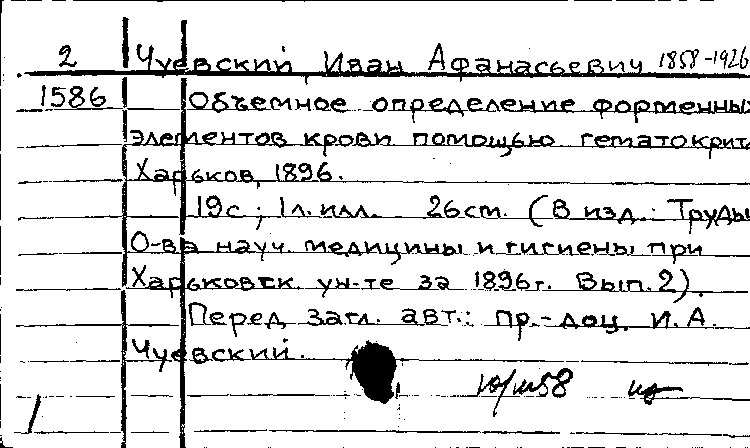 2 Чуевский, Иван Афанасьевич 1858-1926
1586 Объемное определение форменных
элементов крови помощью гематокрита
Харьков, 1896.
19с; 1л.илл. 26cm. (В изд.: Труды
О-ва науч. медицины и гигиены при
Харьковск. ун-те за 1896г. Вып.2).
Перед загл. авт.: пр.-доц. И.А.
Чуевский.